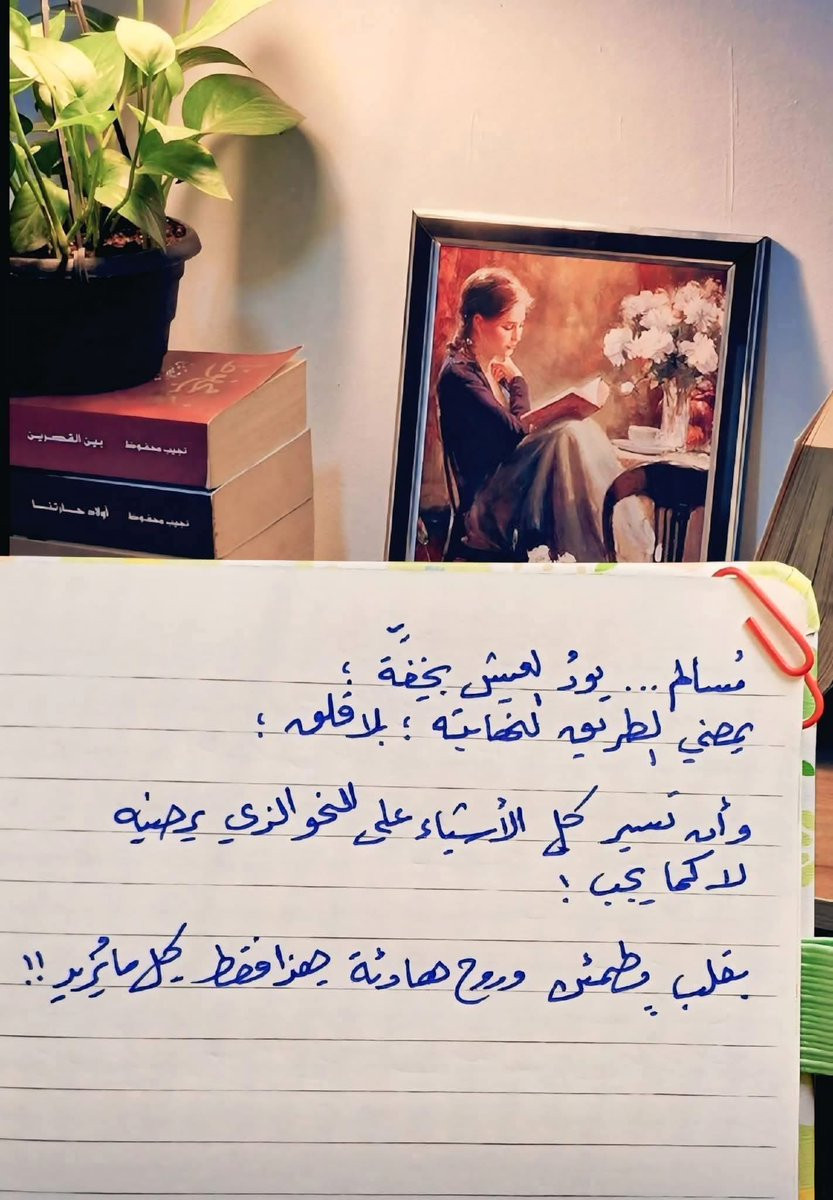 نجيب محفوظ بين القصرين
نجيب محفوظ أولاد حارتنا
مُسالم... يودُ العيش بخفَّة ؛
يمضي الطريق لنهايته ؛ بلا قلق ؛
وأن تسير كل الأشياء على النحو الذي يرضيه
لا كما يجب !
بقلب مطمئن وروح هادئة هذا فقط كل ما يُريد !!